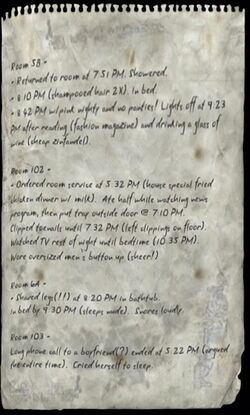 Room 5B -
- Returned to room at 7:51 PM. Showered.
- 8:10 PM (shampooed hair 2X). In bed.
- 8:42 PM w/pink nighty and no panties! Lights off at 9:23
PM after reading (fashion magazine) and drinking a glass of
wine (cheap zinfandel).
Room 102 -
- Ordered room service at 5:32 PM (house special fried
chicken dinner w/ milk). Ate half while watching news
program, then put tray outside door @ 7:10 PM.
Clipped toenails until 7:32 PM (left clippings on floor).
Watched TV rest of night until bedtime (10:35 PM).
Wore oversized men's button up (sheer!)
Room 6A -
- Shaved legs(!!) at 8:20 PM in bathtub.
In bed by 9:30 PM (sleeps nude). Snores loudly.
Room 103 -
Long phone call to a boyfriend(?) ended at 5:22 PM (argued
the entire time). Cried herself to sleep.